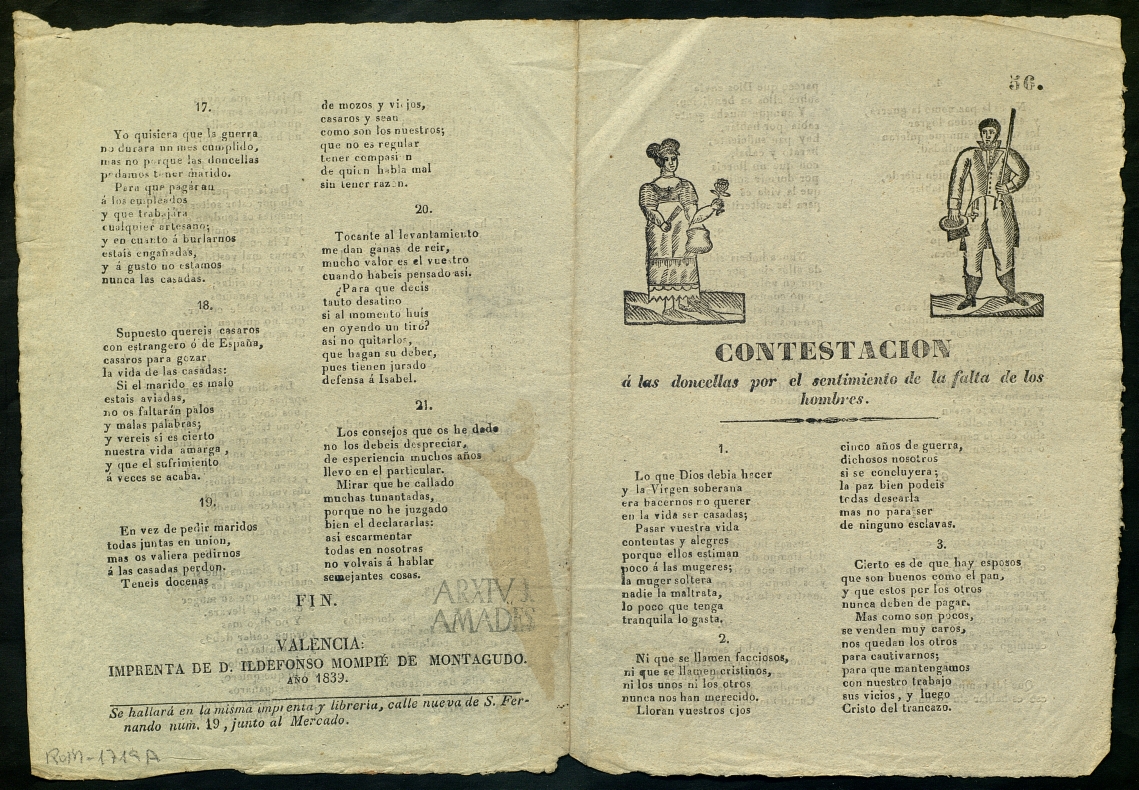 17.
Yo quisiera que la guerra
no durára un mes cumplido,
mas no porque las doncellas
podamos tener marido.
Para que pagáran
á los empleados
y que trabajára
cualquier artesano;
y en cuanto á burlarnos
estais engañadas,
y á gusto no estamos
nunca las casadas.
18.
Supuesto quereis casaros
con estrangero ó de España,
casaros para gozar
la vida de las casadas:
Si el marido es malo
estais aviadas,
no os faltarán palos
y malas palabras;
y vereis si es cierto
nuestra vida amarga,
y que el sufrimiento
á veces se acaba.
19.
En vez de pedir maridos
todas juntas en union,
mas os valiera pedirnos
á las casadas perdon.
Teneis docenas
de mozos y viejos,
casaros y sean
como son los nuestros;
que no es regular
tener compasion
de quien habla mal
sin tener razon.
20.
Tocante al levantamiento
me dan ganas de reir,
mucho valor es el vuestro
cuando habeis pensado asi.
¿Para que decis
tauto desatino
si al momento huis
en oyendo un tiro?
asi no quitarlos,
que hagan su deber,
pues tienen jurado
defensa á Isabel.
21.
Los consejos que os he dado
no los debeis despreciar,
de esperiencia muchos años
llevo en el particular.
Mirar que he callado
muchas tunantadas,
porque no he juzgado
bien el declararlas:
asi escarmentar
todas en nosotras
no volvais á hablar
semejantes cosas.
FIN.
ARXIU J.
AMADES
VALENCIA:
IMPRENTA DE D. ILDEFONSO MOMPIÉ DE MONTAGUDO.
AÑO 1839.
Se hallará en la misma imprenta y libreria, calle nueva de S. Fer-
nando num. 19, junto al Mercado.
ROM-1719A
56.
CONTESTACION
á las doncellas por el sentimiento de la falta de los
hombres.
1.
Lo que Dios debia hacer
y la Virgen soberana
era hacernos no querer
en la vida ser casadas;
Pasar vuestra vida
contentas y alegres
porque ellos estiman
poco á las mugeres;
la muger soltera
nadie la maltrata,
lo poco que tenga
tranquila lo gasta.
2.
Ni que se llamen facciosos,
ni que se llamen cristinos,
ni los unos ni los otros
nunca nos han merecido.
Lloran vuestros ojos
cinco años de guerra,
dichosos nosotros
si se concluyera;
la paz bien podeis
todas desearla
mas no para ser
de ninguno esclavas.
3.
Cierto es de que hay esposos
que son buenos como el pan,
y que estos por los otros
nunca deben de pagar.
Mas como son pocos,
se venden muy caros,
nos quedan los otros
para cautivarnos;
para que mantengamos
con nuestro trabajo
sus vicios, y luego
Cristo del trancazo.